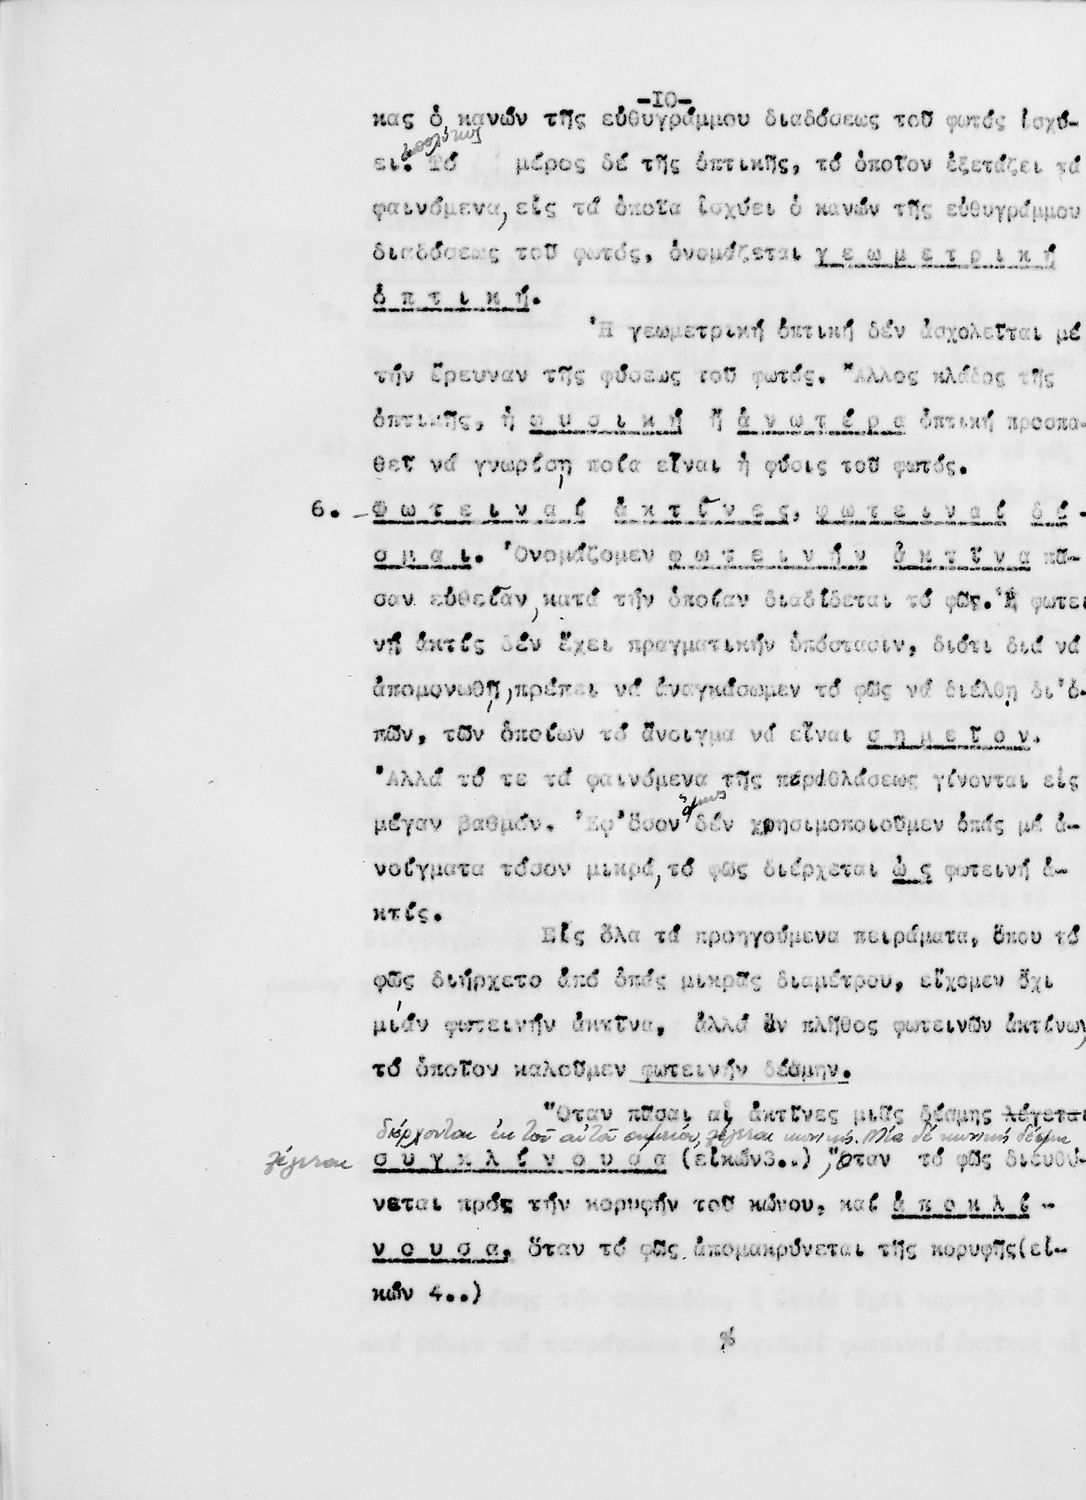 -10-
κας ὁ κανών τῆς εὐθυγράμμου διαδόσεως τοῦ φωτός ἰσχύ-
ει. Τό μέρος δέ τῆς ὀπτικῆς, τό ὁποῖον ἐξετάζει τά
φαινόμενα, εἰς τά ὁποῖα ἰσχύει ὁ κανών τῆς εὐθυγράμμου
διαδόσεως τοῦ φωτός, ὀνομάζεται γ ε ω μ ε τ ρ ι κ ή
ὀ π τ ι κ ή.
Ἡ γεωμετρική ὀπτική δέν ἀσχολεῖται μέ
τήν ἔρευναν τῆς φύσεως τοῦ φωτός. Ἄλλος κλάδος τῆς
ὀπτικῆς, ἡ φ υ σ ι κ ή ἤ ἀ ν ω τ έ ρ α ὀπτική προσπα-
θεῖ νά γνωρίσῃ ποία εἶναι ἡ φύσις τοῦ φωτός.
6. Φ ω τ ε ι ν α ί ἀ κ τ ῖ ν ε ς, φ ω τ ε ι ν α ί δ έ -
σ μ α ι. Ὀνομάζομεν φ ω τ ε ι ν ή ν ἀ κ τ ῖ ν α πᾶ-
σαν εὐθεῖαν, κατά τήν ὁποίαν διαδίδεται τό φῶς. Ἡ φωτει
νή ἀκτίς δέν ἔχει πραγματικήν ὑπόστασιν, διότι διά νά
ἀπομονωθῇ, πρέπει νά ἀναγκάσωμεν τό φῶς νά διέλθῃ δι' ὀ-
πῶν, τῶν ὁποίων τό ἄνοιγμα νά εἶναι σ η μ ε ῖ ο ν.
Ἀλλά τό τε τά φαινόμενα τῆς περιθλάσεως γίνονται εἰς
μέγαν βαθμόν. Ἐφ' ὅσον ὅμως δέν χρησιμοποιοῦμεν ὀπάς μέ ἀ-
νοίγματα τόσον μικρά, τό φῶς διέρχεται ὡ ς φωτεινή ἀ-
κτίς.
Εἰς ὅλα τά προηγούμενα πειράματα, ὅπου τό
φῶς διήρχετο ἀπό ὀπάς μικρᾶς διαμέτρου, εἴχομεν ὄχι
μιάν φωτεινήν ἀκτῖνα, ἀλλά ἕν πλῆθος φωτεινῶν ἀκτίνων,
τό ὁποῖον καλοῦμεν φωτεινήν δέσμην.
Ὅταν πᾶσαι αἱ ἀκτῖνες μιᾶς δέσμης λέγεται
διέρχονται ἐκ τοῦ αὐτοῦ σημείου, λέγεται κωνική. Μία δέ κωνική δέσμη
λέγεται σ υ γ κ λ ί ν ο υ σ α (εἰκών3..), Ὅταν τό φῶς διευθύ-
νεται πρός τήν κορυφήν τοῦ κώνου, καί ἀ π ο κ λ ί -
ν ο υ σ α, ὅταν τό φῶς ἀπομακρύνεται τῆς κορυφῆς(εἰ-
κών 4..)